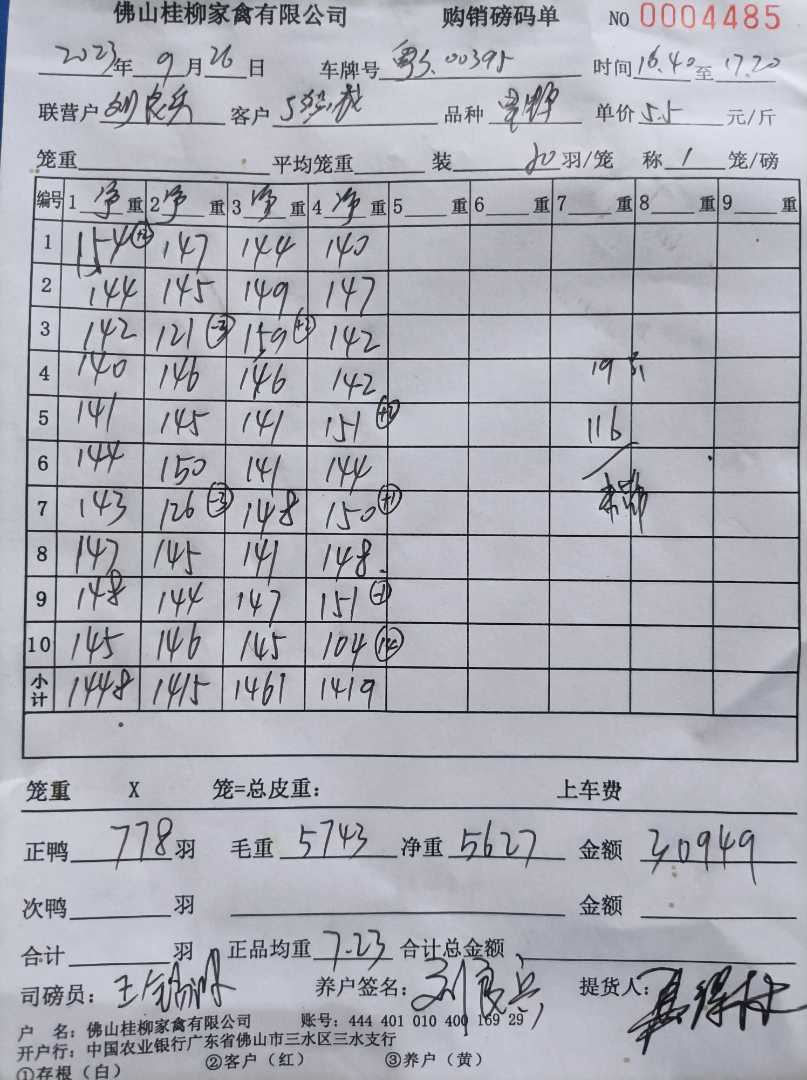 佛山桂柳家禽有限公司 购销磅码单 NO 0004485
2023年 9月 26日 车牌号 粤S.00395 时间 16.40 至 17.20
联营户 刘良兵 客户 品种 单价 5.5 元/斤
笼重 平均笼重 装 20 羽/笼 称 1 笼/磅
编号 1 净 重 2 净 重 3 净 重 4 净 重 5 重 6 重 7 重 8 重 9 重
1 154 147 144 140
2 144 145 149 147
3 142 121 (-3) 159 (+2) 142
4 140 146 146 142 19
5 141 145 141 151 116
6 144 150 141 144
7 143 126 (-3) 148 150 (+1)
8 147 145 141 148
9 148 144 147 151 (-1)
10 145 146 145 104 (14)
小计 1448 1415 1461 1419
笼重 X 笼=总皮重: 上车费
正鸭 778 羽 毛重 5743 净重 5627 金额 30949
次鸭 羽 金额
合计 羽 正品均重 7.23 合计总金额
司磅员: 养户签名: 刘良兵 提货人:
户 名: 佛山桂柳家禽有限公司 账号: 444 401 010 400 169 29
开户行: 中国农业银行广东省佛山市三水区三水支行
①存根(白) ②客户(红) ③养户(黄)